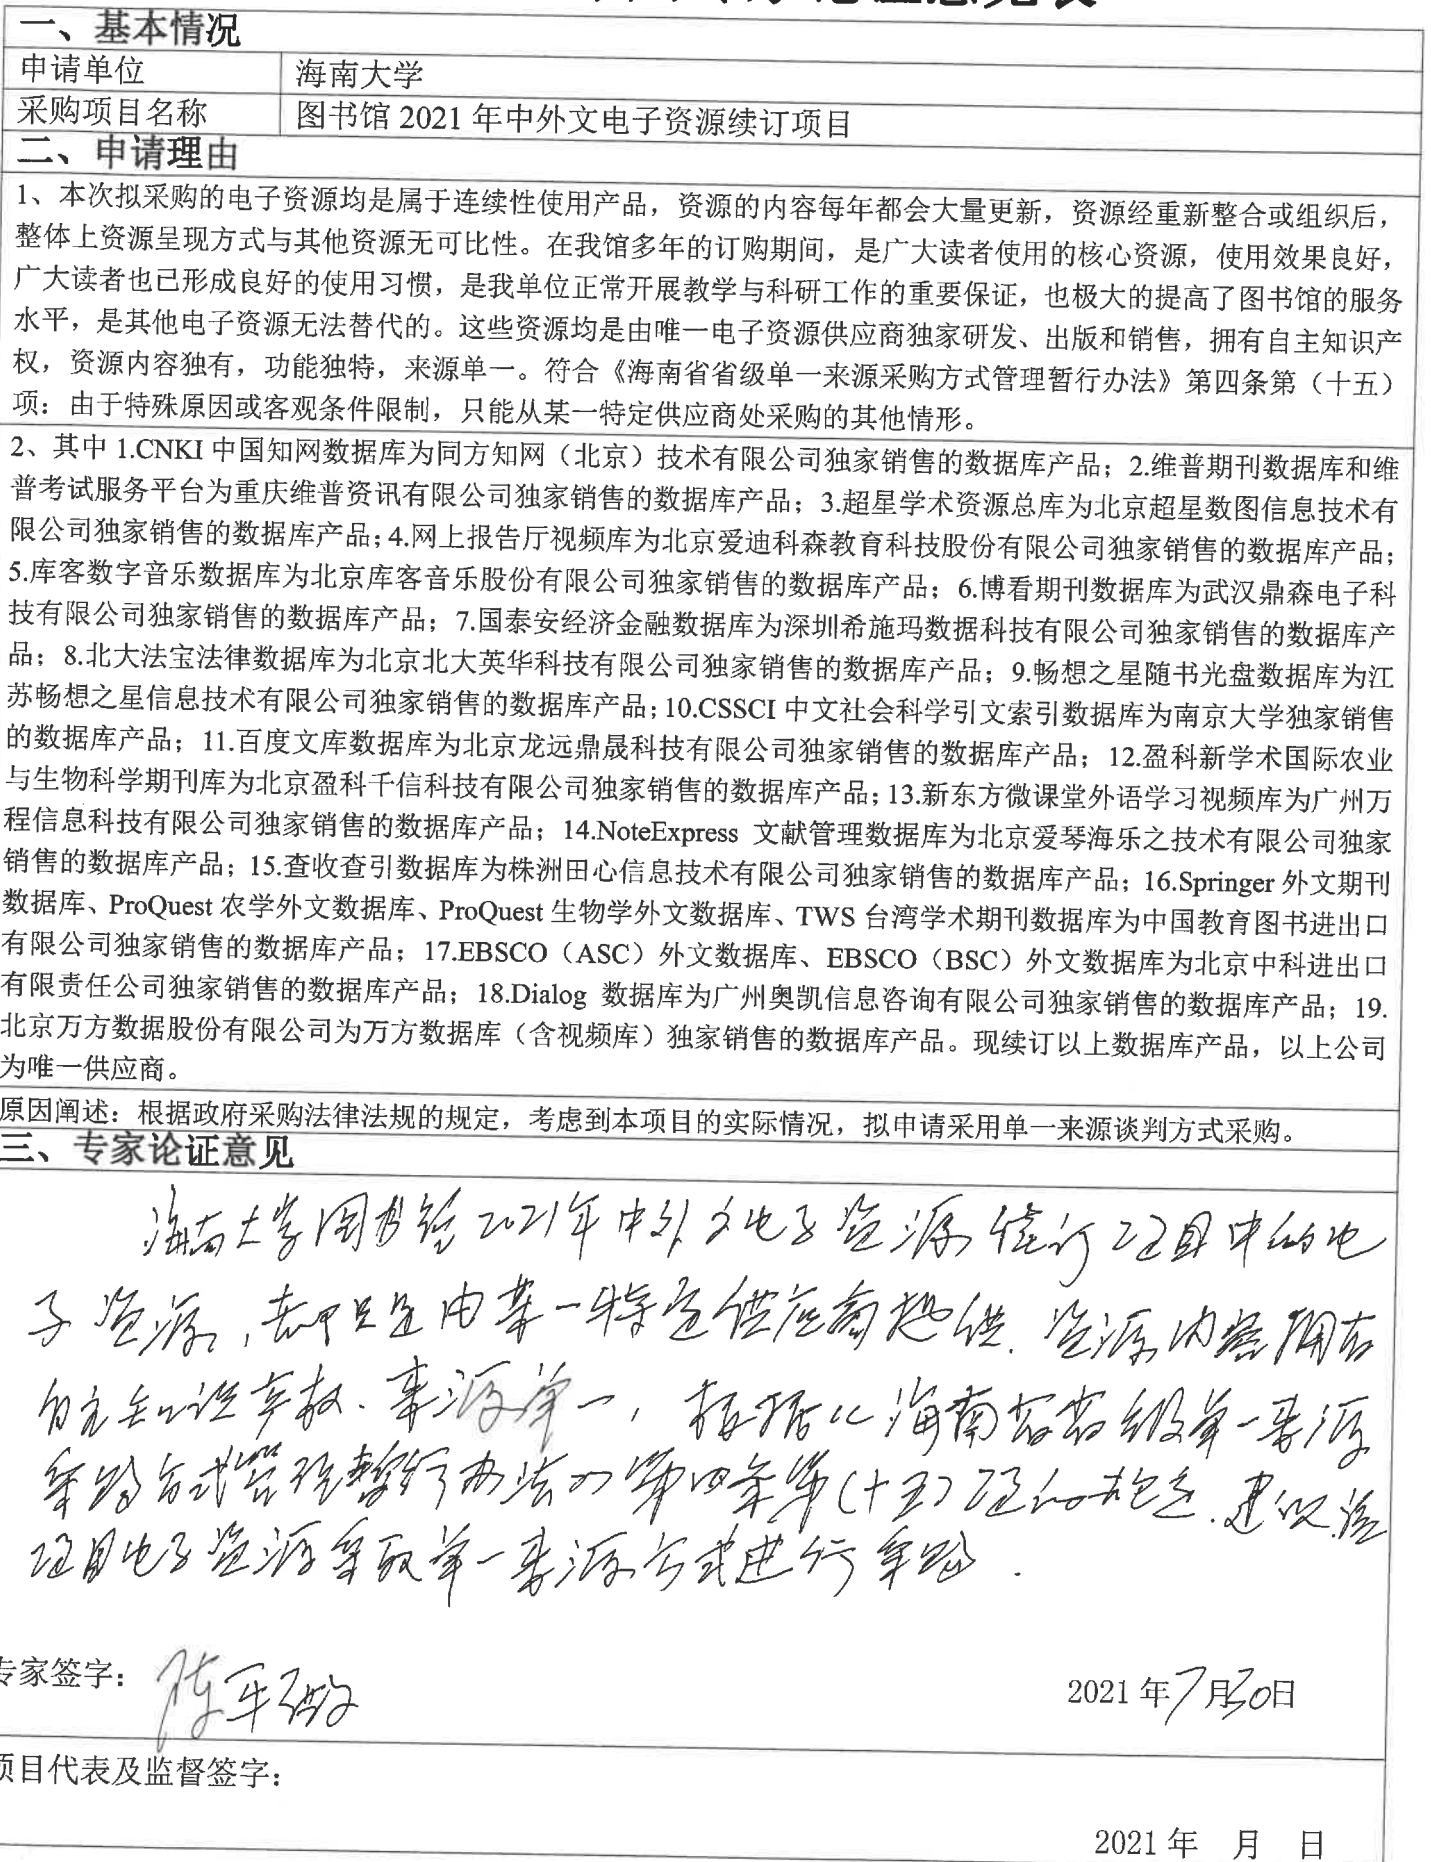 一、基本情况
申请单位 海南大学
采购项目名称 图书馆 2021 年中外文电子资源续订项目
二、申请理由
1、本次拟采购的电子资源均是属于连续性使用产品，资源的内容每年都会大量更新，资源经重新整合或组织后，
整体上资源呈现方式与其他资源无可比性。在我馆多年的订购期间，是广大读者使用的核心资源，使用效果良好，
广大读者也已形成良好的使用习惯，是我单位正常开展教学与科研工作的重要保证，也极大的提高了图书馆的服务
水平，是其他电子资源无法替代的。这些资源均是由唯一电子资源供应商独家研发、出版和销售，拥有自主知识产
权，资源内容独有，功能独特，来源单一。符合《海南省省级单一来源采购方式管理暂行办法》第四条第（十五）
项：由于特殊原因或客观条件限制，只能从某一特定供应商处采购的其他情形。
2、其中 1.CNKI 中国知网数据库为同方知网（北京）技术有限公司独家销售的数据库产品；2.维普期刊数据库和维
普考试服务平台为重庆维普资讯有限公司独家销售的数据库产品；3.超星学术资源总库为北京超星数图信息技术有
限公司独家销售的数据库产品；4.网上报告厅视频库为北京爱迪科森教育科技股份有限公司独家销售的数据库产品；
5.库客数字音乐数据库为北京库客音乐股份有限公司独家销售的数据库产品；6.博看期刊数据库为武汉鼎森电子科
技有限公司独家销售的数据库产品；7.国泰安经济金融数据库为深圳希施玛数据科技有限公司独家销售的数据库产
品；8.北大法宝法律数据库为北京北大英华科技有限公司独家销售的数据库产品；9.畅想之星随书光盘数据库为江
苏畅想之星信息技术有限公司独家销售的数据库产品；10.CSSCI 中文社会科学引文索引数据库为南京大学独家销售
的数据库产品；11.百度文库数据库为北京龙远鼎晟科技有限公司独家销售的数据库产品；12.盈科新学术国际农业
与生物科学期刊库为北京盈科千信科技有限公司独家销售的数据库产品；13.新东方微课堂外语学习视频库为广州万
程信息科技有限公司独家销售的数据库产品；14.NoteExpress 文献管理数据库为北京爱琴海乐之技术有限公司独家
销售的数据库产品；15.查收查引数据库为株洲田心信息技术有限公司独家销售的数据库产品；16.Springer 外文期刊
数据库、ProQuest 农学外文数据库、ProQuest 生物学外文数据库、TWS 台湾学术期刊数据库为中国教育图书进出口
有限公司独家销售的数据库产品；17.EBSCO（ASC）外文数据库、EBSCO（BSC）外文数据库为北京中科进出口
有限责任公司独家销售的数据库产品；18.Dialog 数据库为广州奥凯信息咨询有限公司独家销售的数据库产品；19.
北京万方数据股份有限公司为万方数据库（含视频库）独家销售的数据库产品。现续订以上数据库产品，以上公司
为唯一供应商。
原因阐述：根据政府采购法律法规的规定，考虑到本项目的实际情况，拟申请采用单一来源谈判方式采购。
三、专家论证意见
海南大学图书馆2021年中外文电子资源续订项目中的电
子资源，都只是由某一特定供应商提供.资源内容拥有
自主知识产权.来源单一，根据《海南省省级单一来源
采购方式管理暂行办法》第四条第(十五)项的规定.建议该
项目电子资源采取单一来源方式进行采购.
专家签字： 2021 年7月30日
项目代表及监督签字：
2021 年 月 日